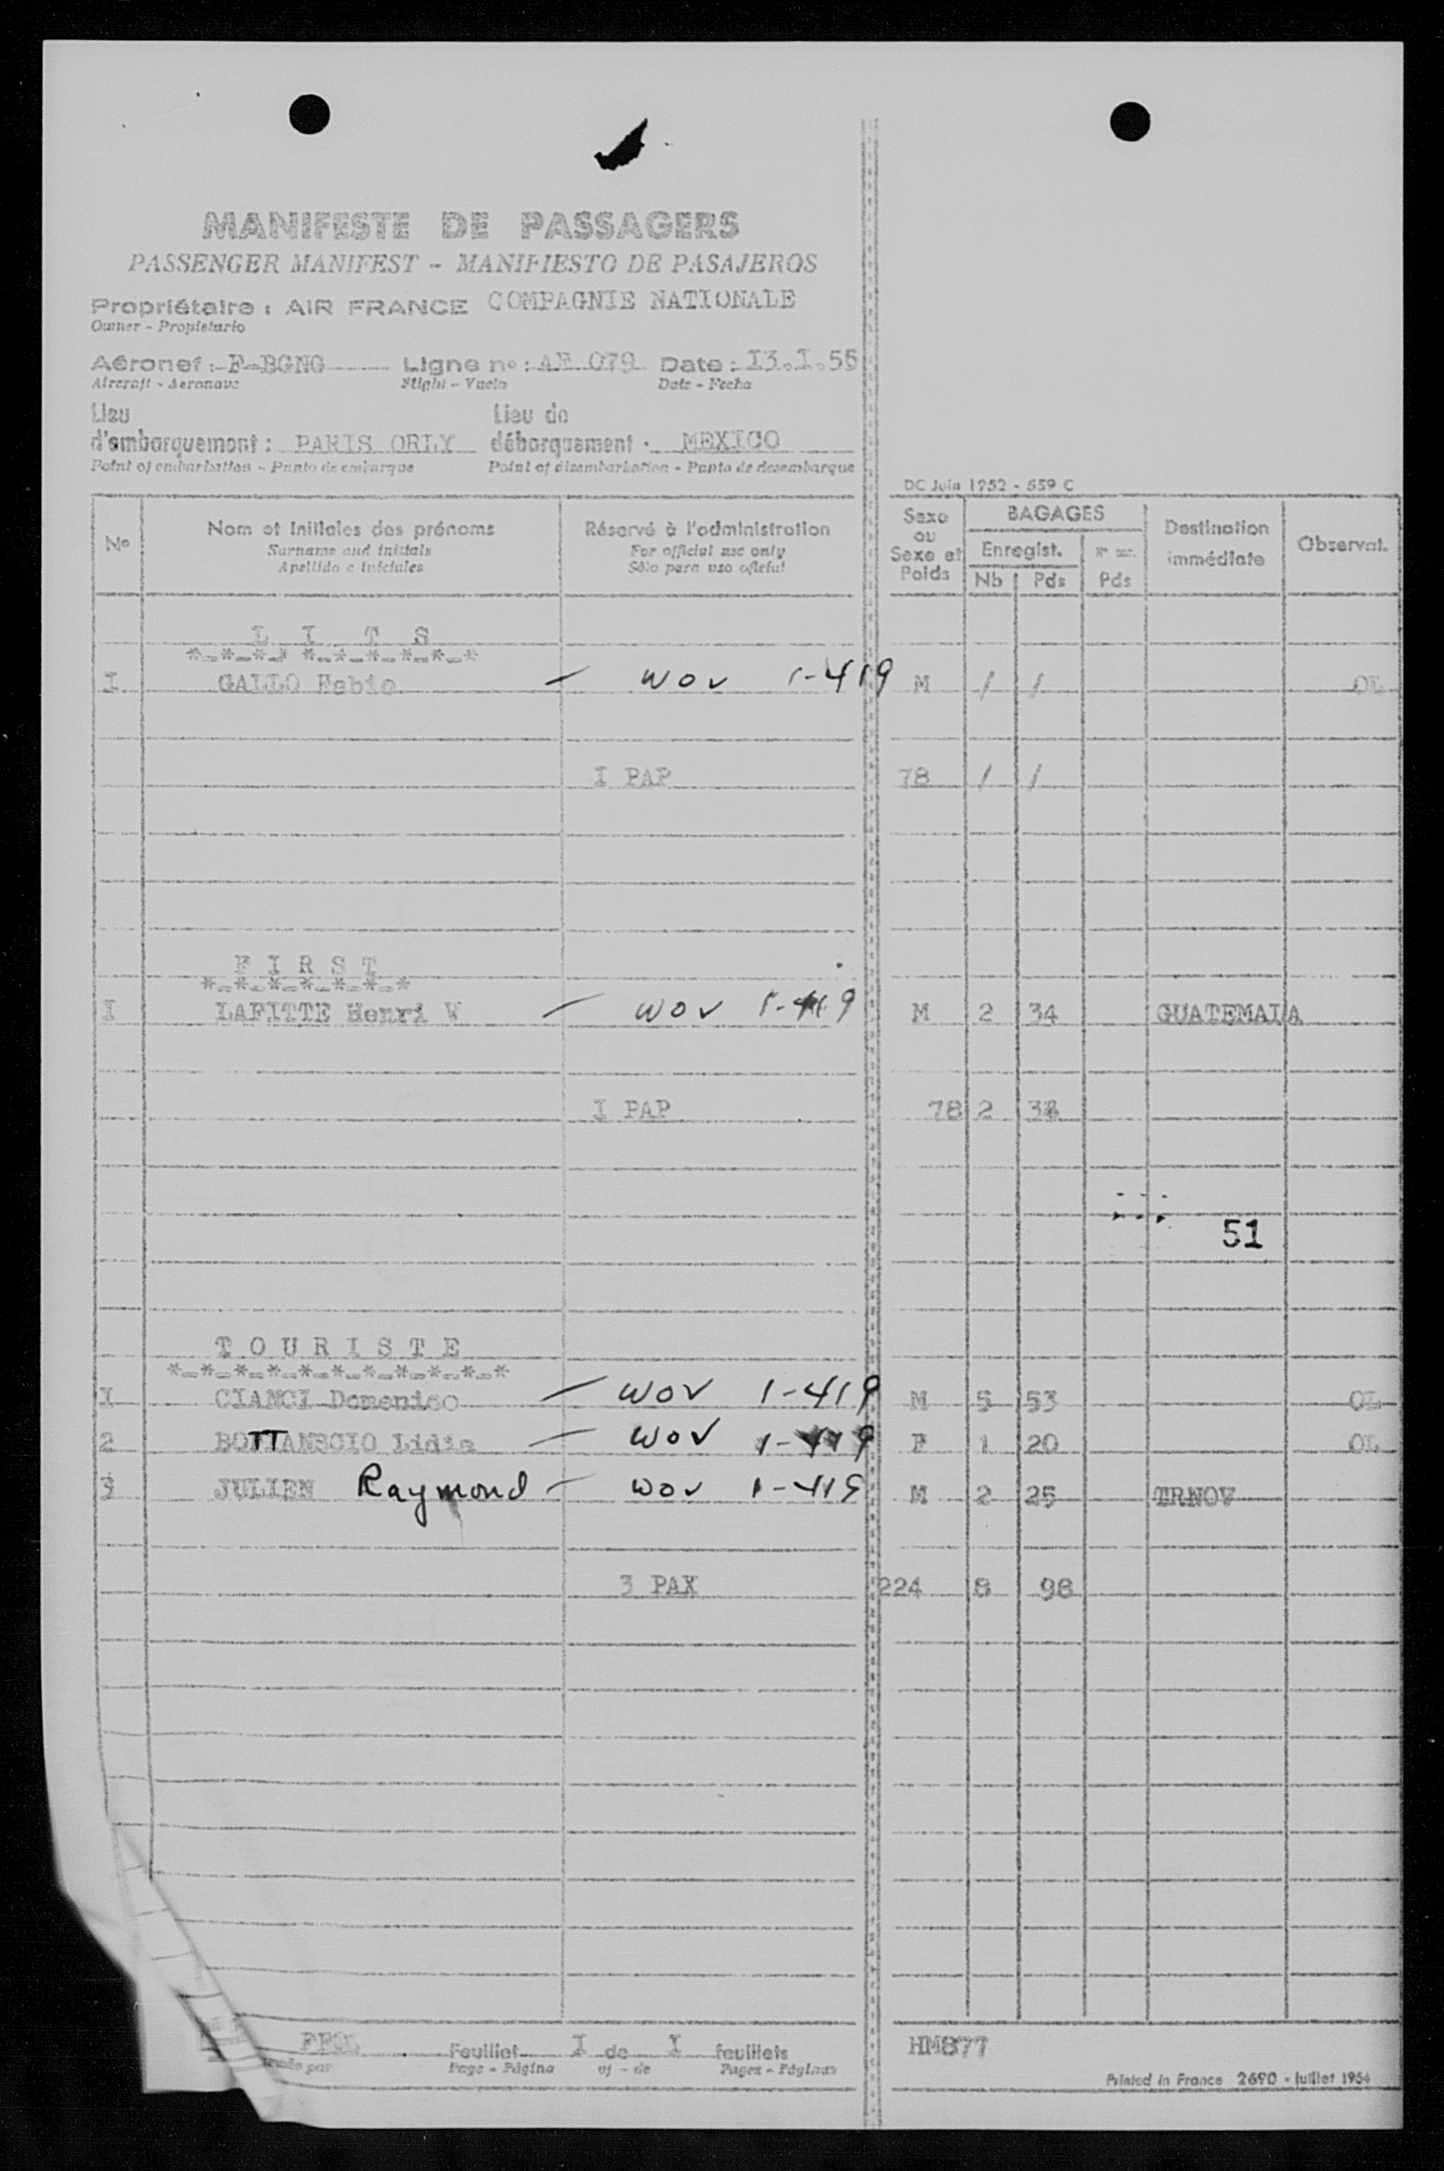 MANIFESTE DE PASSAGERS
PASSENGER MANIFEST - MANIFIESTO DE PASAJEROS
Propriétaire : AIR FRANCE COMPAGNIE NATIONALE
Owner - Propietario
Aéronef : F-BGNG Ligne no : AF 079 Date : I3.I.55
Aircraft - Aeronave Flight - Vuelo Date - Fecha
Lieu Lieu de
d'embarquement : PARIS ORLY débarquement : MEXICO
Point of embarkation - Punto de embarque Point of disembarkation - Punto de desembarque
DC Juin 1952 - 559 C
No Nom et Initiales des prénoms Réservé à l'administration Sexe ou Sexe et Poids BAGAGES Destination immédiate Observat.
Surname and initials For official use only Enregist.
Apellido e iniciales Sólo para uso oficial Nb Pds Pds
L I T S
*-*-*-* *-*-*-*-*-*
I GALLO Fabio - WOV 1-419 M / / OL
I PAP 78 / /
F I R S T
*-*-*-*-*-*-*
I LAFITTE Henri W - WOV 1-419 M 2 34 GUATEMALA
I PAP 78 2 34
51
T O U R I S T E
*-*-*-*-*-*-*-*-*-*-*
I CIANCI Domenico - WOV 1-419 M 5 53 OL
2 BOTTANSCIO Lidia - WOV 1-419 F 1 20 OL
3 JULIEN Raymond - WOV 1-419 M 2 25 TRNOV
3 PAX 224 8 98
Feuillet I de I feuillets HM877
Page - Página of - de Pages - Páginas
Printed in France 2690 - Juillet 1954